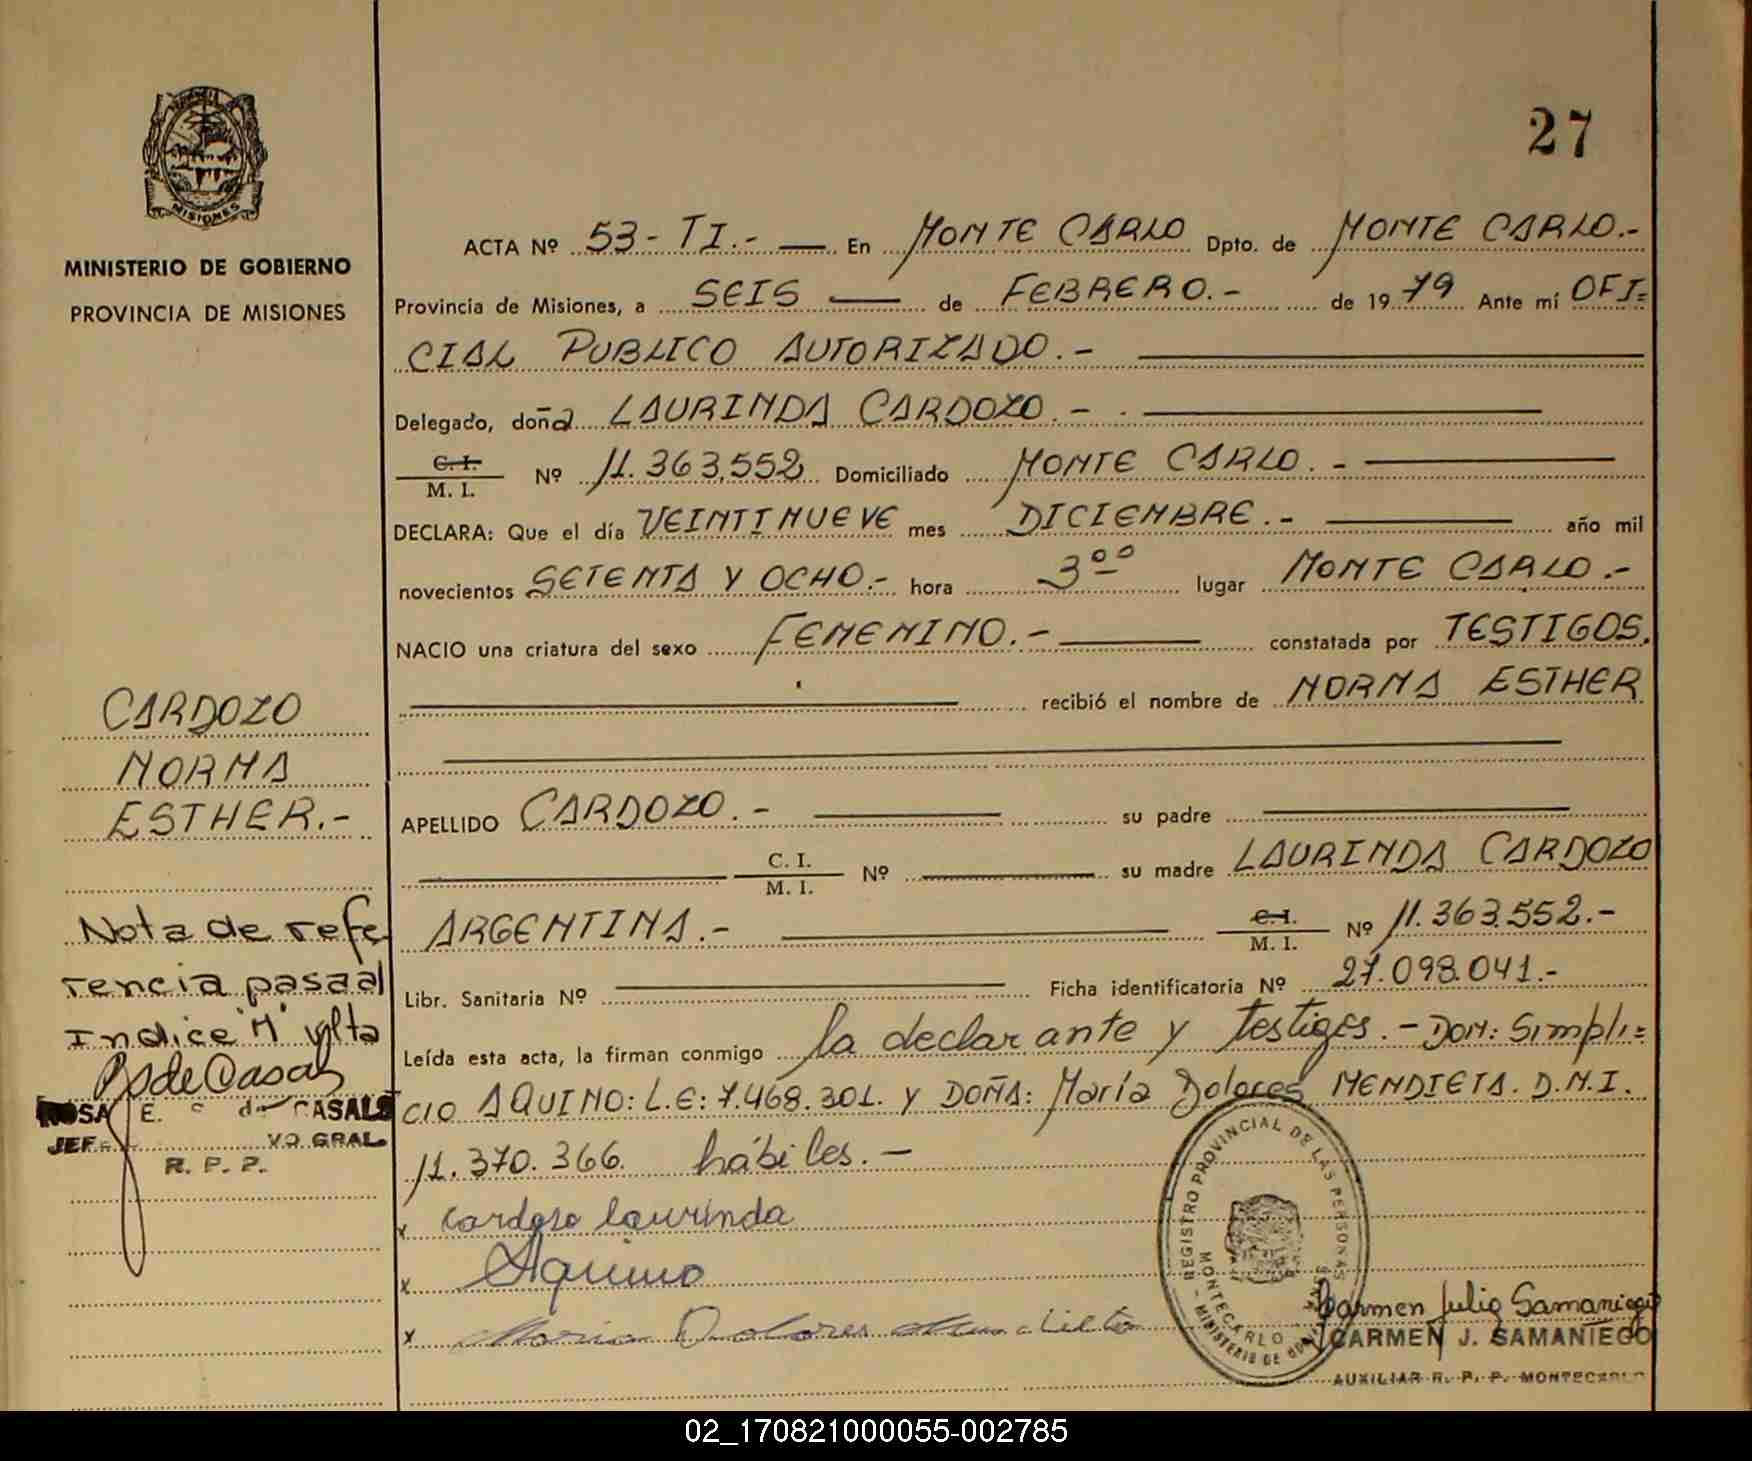 27
MISIONES
MINISTERIO DE GOBIERNO
PROVINCIA DE MISIONES
ACTA Nº 53-TI.- En MONTE CARLO Dpto. de MONTE CARLO.-
Provincia de Misiones, a SEIS de FEBRERO.- de 1979 Ante mí OFI=
CIAL PUBLICO AUTORIZADO.-
Delegado, doña LAURINDA CARDOZO.-
C. I.
M. I. Nº 11.363.552 Domiciliado MONTE CARLO.-
DECLARA: Que el día VEINTINUEVE mes DICIEMBRE.- año mil
novecientos SETENTA Y OCHO.- hora 3ºº lugar MONTE CARLO.-
NACIO una criatura del sexo FEMENINO.- constatada por TESTIGOS.
recibió el nombre de NORMA ESTHER
APELLIDO CARDOZO.- su padre
C. I.
M. I. Nº su madre LAURINDA CARDOZO
ARGENTINA.- C. I.
M. I. Nº 11.363.552.-
Libr. Sanitaria Nº Ficha identificatoria Nº 27.098.041.-
Leída esta acta, la firman conmigo la declarante y testigos.- DON: Simpli=
cio AQUINO: L.E: 7.468.301. Y DOÑA: María Dolores MENDIETA. D.N.I.
11.370.366. hábiles.-
x Cardoso laurinda
x Aquino
x Maria Dolores Mendieta
CARDOZO
NORMA
ESTHER.-
Nota de refe
rencia pasa al
Indice "M" vlta
ROSA E. de CASALS
JEF VO GRAL.
R. P. P.
REGISTRO PROVINCIAL DE LAS PERSONAS
MONTECARLO
MINISTERIO DE
Carmen Julia Samaniego
CARMEN J. SAMANIEGO
AUXILIAR R. P. P. MONTECARLO
02_170821000055-002785